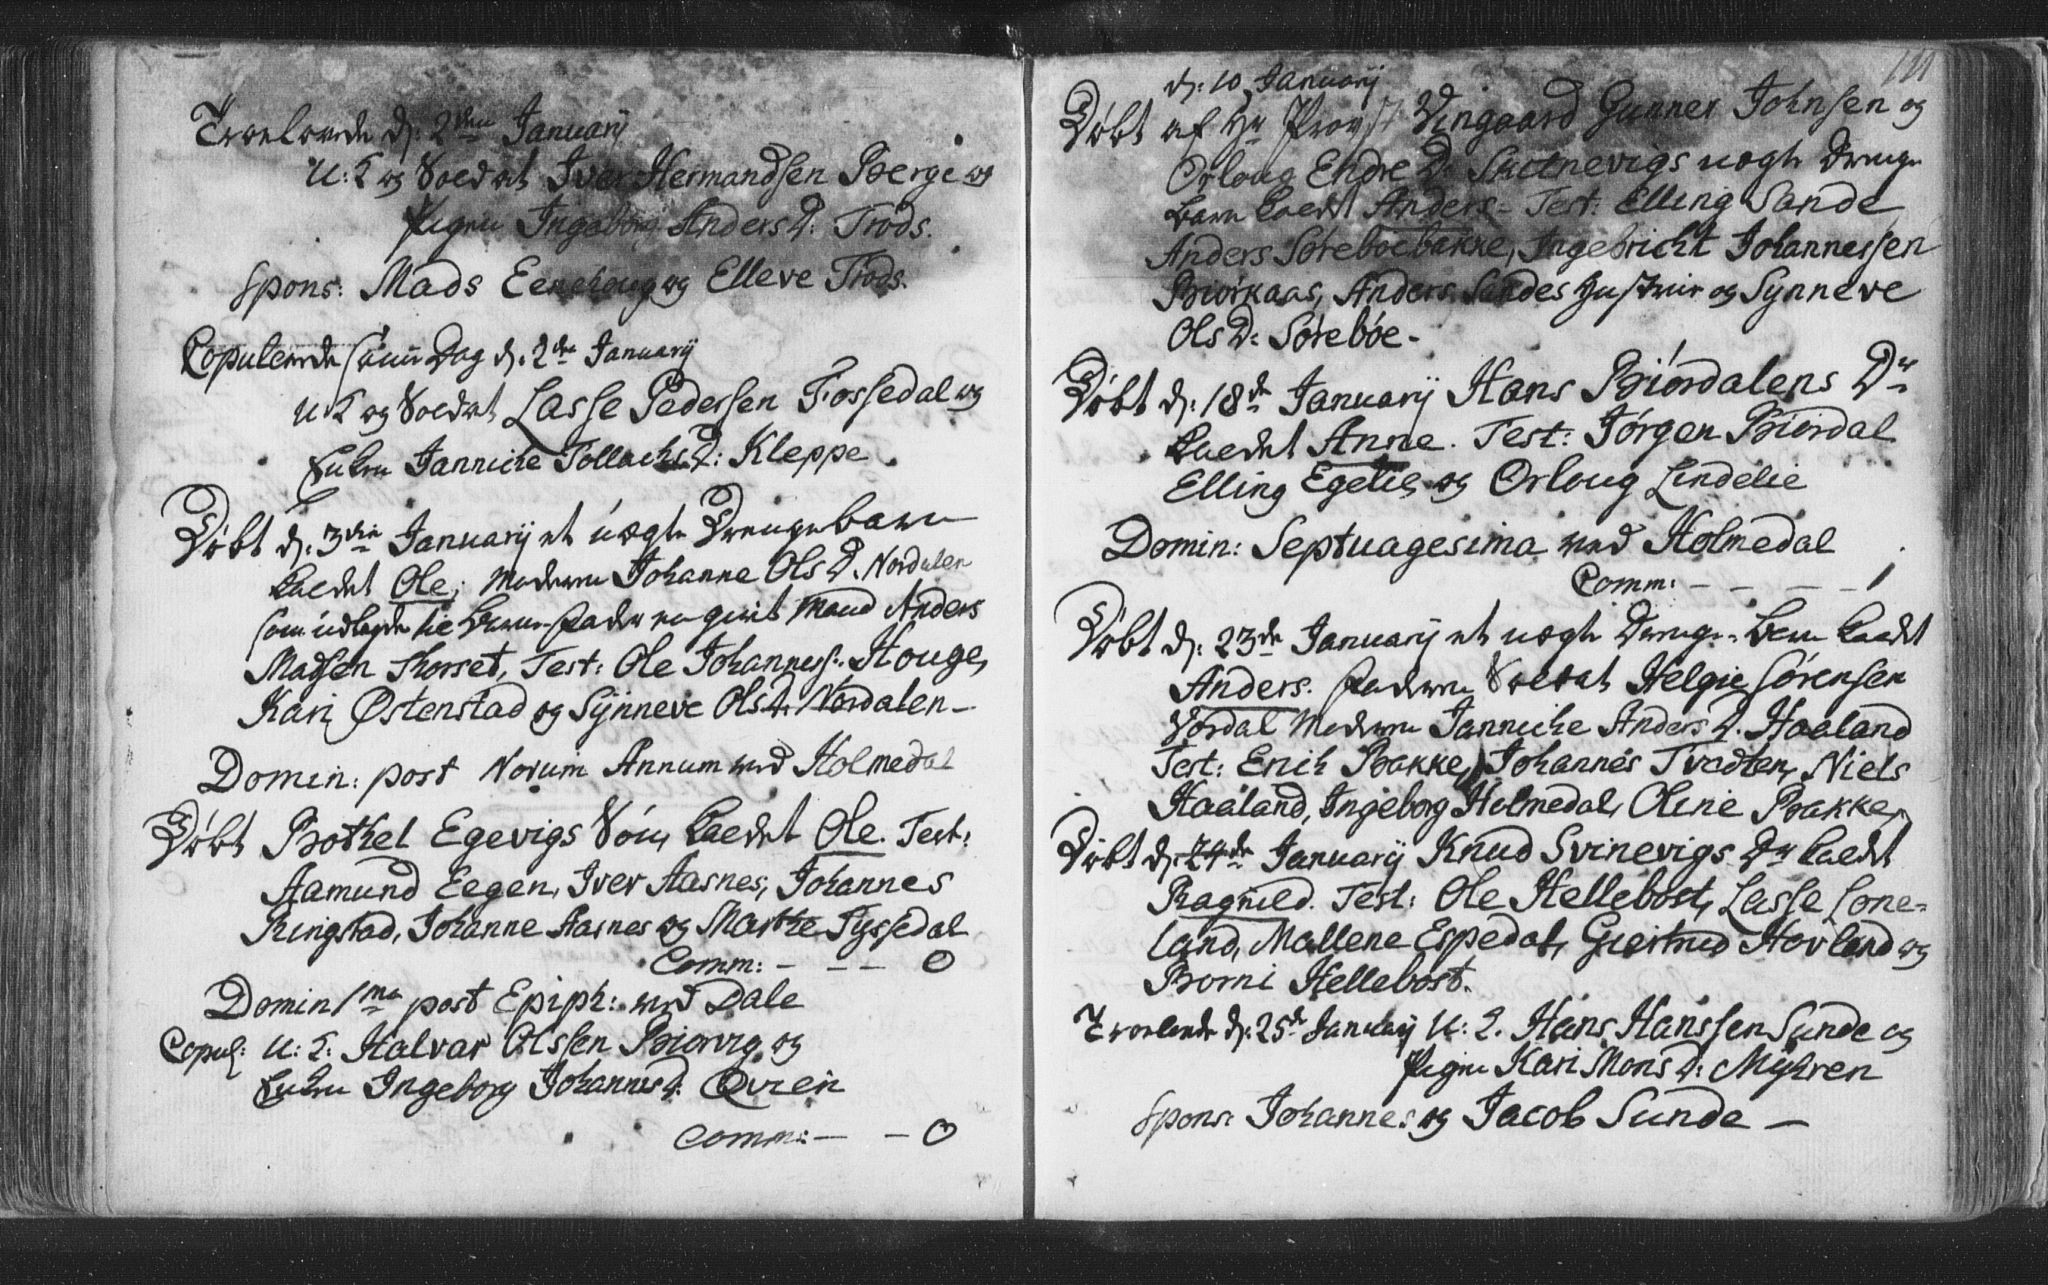 Troelovede d: 2den Januarij
U: K og Soldat Iver Hermandsen Berge og
Pigen Ingeborg AndersD: Trods.
Spons: Mads Eenehoug og Elleve Trods.
Copulerede samme Dag d: 2den Januarij
U: K og Soldat Lasse Pedersen Fossedal og
Enken Jannicke TollachsD: Kleppe.
Døbt d: 3die Januarij et uægte Drengebarn
kaldet Ole; Moderen Johanne OlsD. Nordalen
som udlagde til Barne-Fader en givt Mand Anders
Madsen Thorset, Test: Ole Johanness: Houge,
Kari Østenstad og Synneve OlsD: Nordalen –
Domin: post Novum Annum ved Holmedal
Døbt Bothel Egevigs Søn, kaldet Ole. Test:
Aamund Eegen, Iver Aasnes, Johannes
Ringstad, Johanne Aasnes og Marthe Tyssedal
Comm: – – – 0
Domin 1ma post Epiph: ved Dale
Copul: U: K: Halvar Olssen Biorvig og
Enken Ingeborg JohannesD: Qvien
Comm: – – 0
111
d: 10 Januarij
Døbt af Hr Provst Wingaard Gunner Johnsen og
Orloug EndreD: Sketnevigs uægte Drenge
barn kaldet Anders – Test: Elling Sande
Anders Sørebøebakke, Ingebricht Johannessen
Biørkaas, Anders Sandes Hustrue og Synneve
OlsD: Sørebøe –
Døbt d: 18de Januarij Hans Biørdalens Dr
kaldet Anne. Test: Jørgen Biørdal
Elling Egelie og Orloug Lindelie
Domin: Septuagesima ved Holmedal
Comm: – – – – 1
Døbt d: 23de Januarij et uægte Drenge-Barn kaldet
Anders. Faderen Soldat Helgie Sørensen
Vordal Moderen Jannicke AndersD. Haaland
Test: Erich Bakke, Johannes Tvedten, Niels
Haaland, Ingeborg Holmedal, Oline Bakke,
Døbt d: 24de Januarij Knud Svinevigs Dr kaldet
Ragnild. Test: Ole Hellebost, Lasse Lone-
land, Mallene Espedal, Giertrud Hovland og
Borni Hellebost.
Troelovede d: 25de Januarij U: K. Hans Hanssen Sunde og
Pigen Kari MonsD: Myhren
Spons: Johannes og Jacob Sunde –